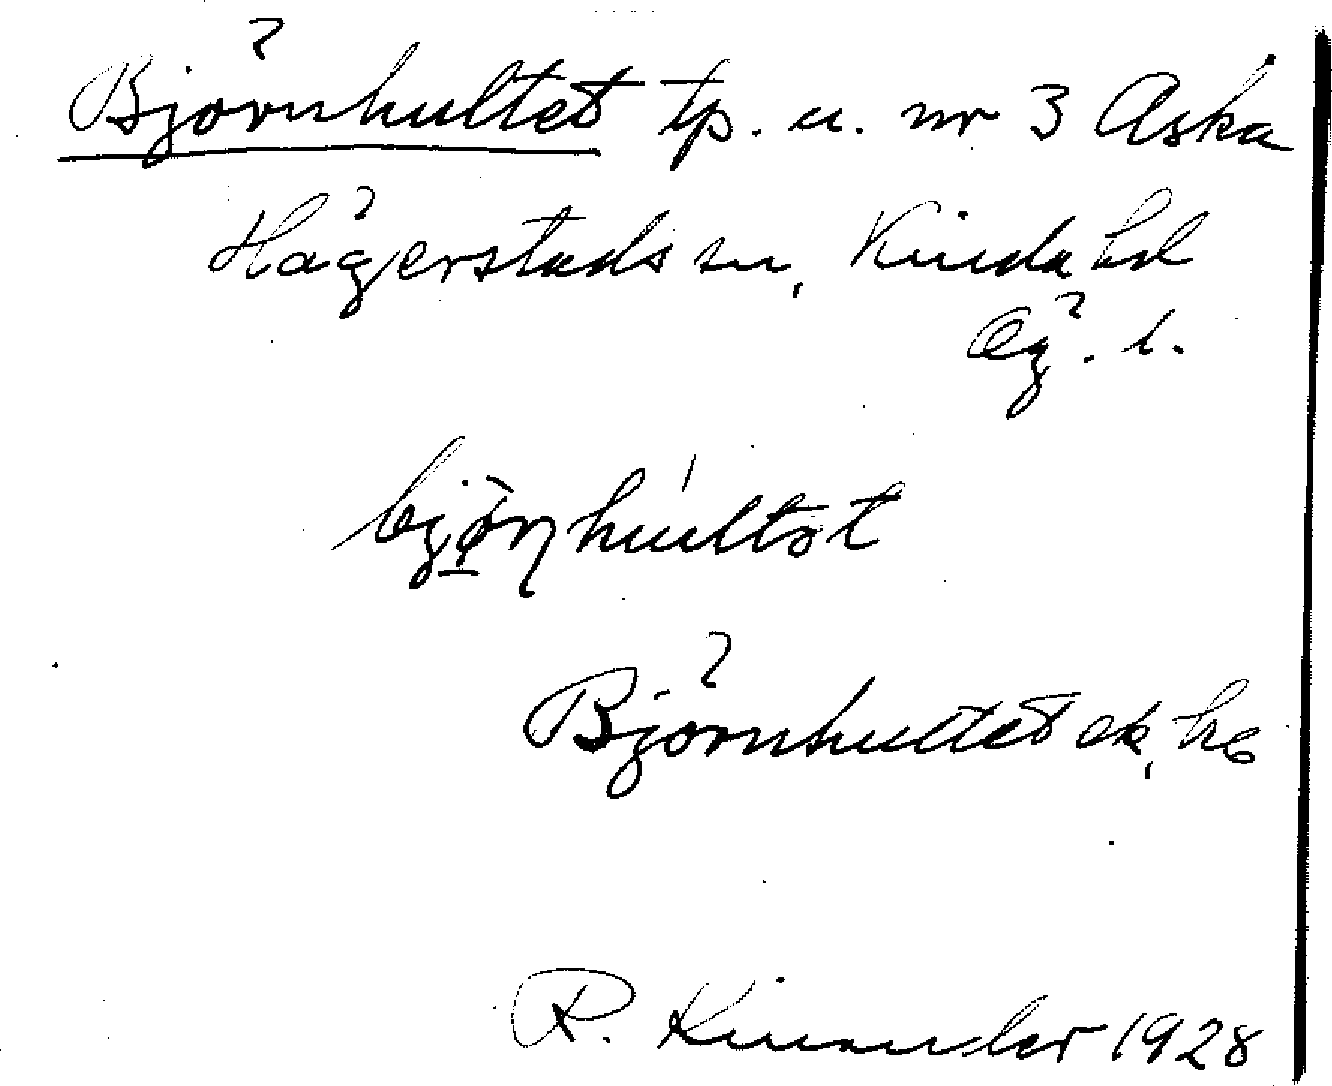 Björnhultet tp. u. nr 3 Aska
Hägerstads sn, Kinda hd
Ög. l.
Björnhultet ek,
R. Kinander 1928